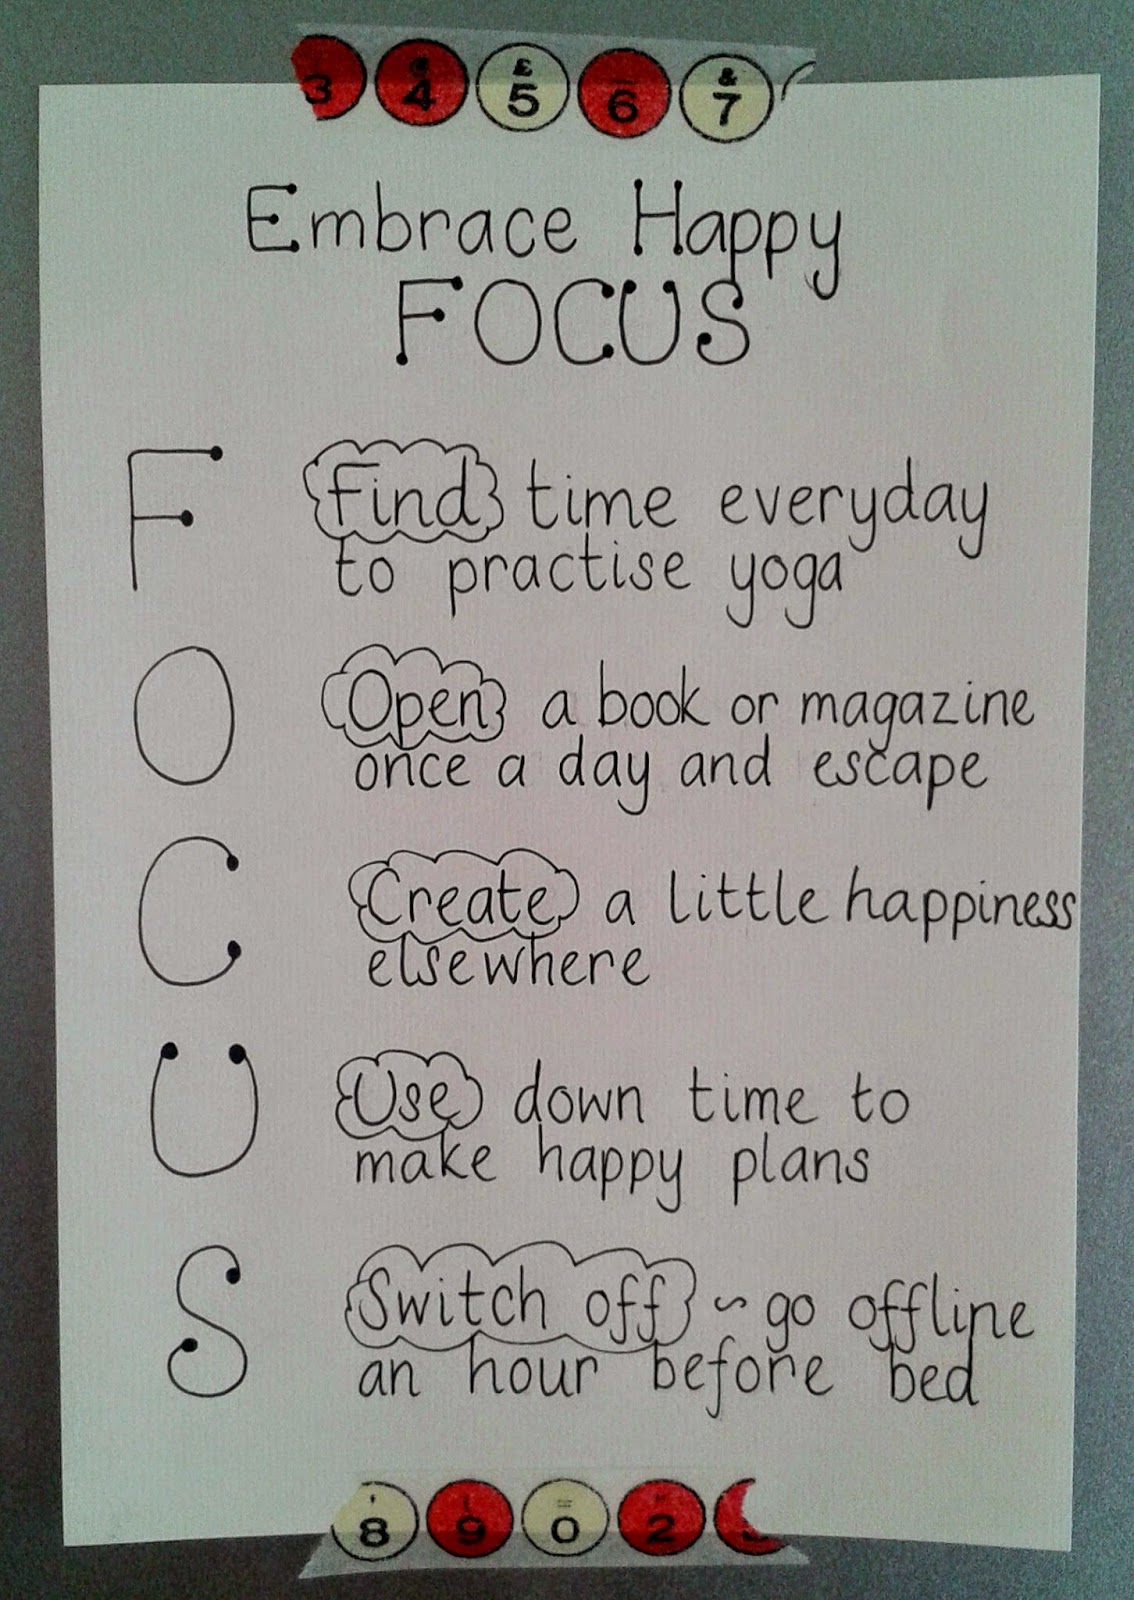 3 4 £ 5 6 & 7
Embrace Happy
FOCUS
F Find time everyday
to practise yoga
O Open a book or magazine
once a day and escape
C Create a little happiness
elsewhere
U Use down time to
make happy plans
S Switch off ~ go offline
an hour before bed
' 8 9 = 0 " 2